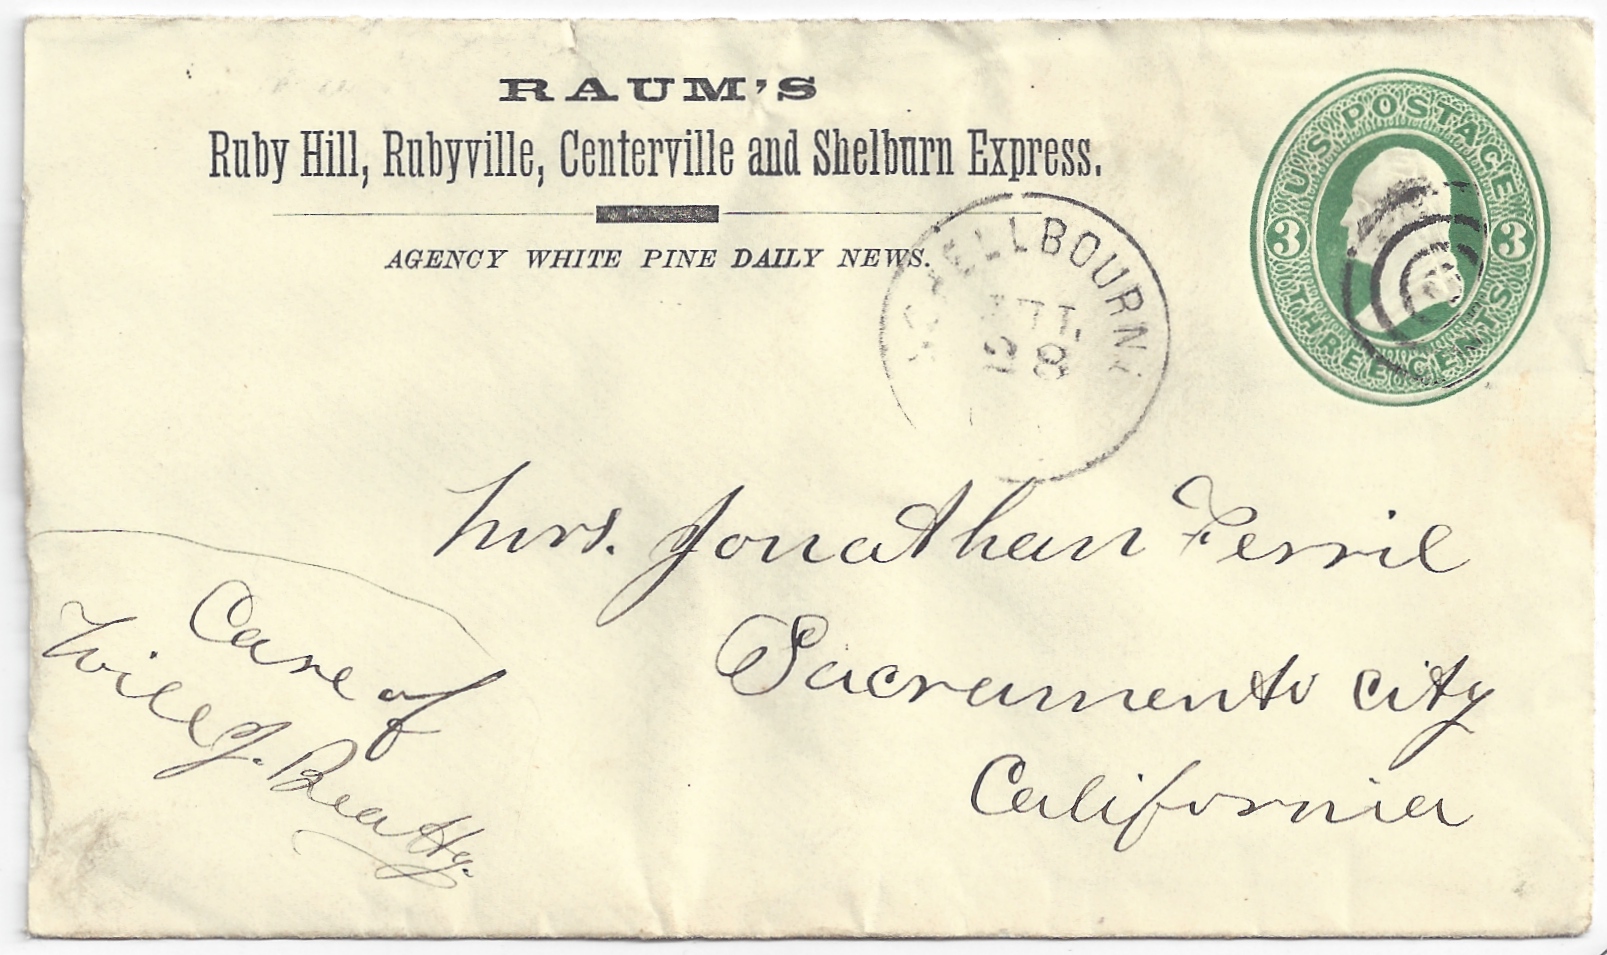 RAUM'S
Ruby Hill, Rubyville, Centerville and Shelburn Express.
AGENCY WHITE PINE DAILY NEWS.
U.S POSTAGE
3 3
THREE CENTS
SCHELLBOURNE
28
Mrs. Jonathan Ferril
Sacramento City
California
Care of
Will J. Beatty.